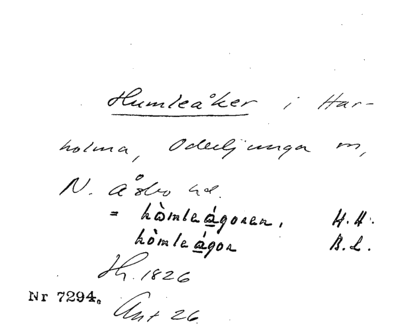 Humleåker i Har-
holma, Oderljunga sn,
N. Åsbo hd.
= hòmleágoren. H.H.
hòmleágor B.L.
Jh. 1826
Nr 7294. Ant 26